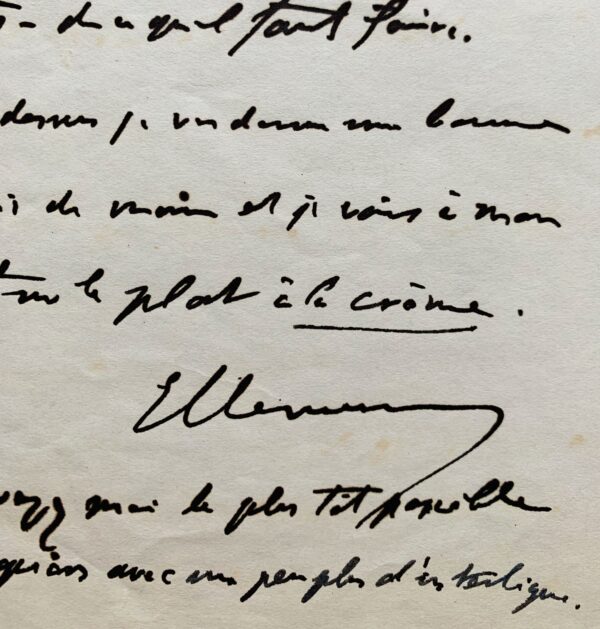 qu'il faut faire.
dessus je vous donne une bonne
de main et je vais à mon
sur le plat à la crème.
moi le plus tôt possible
avec un peu plus d'interligne.